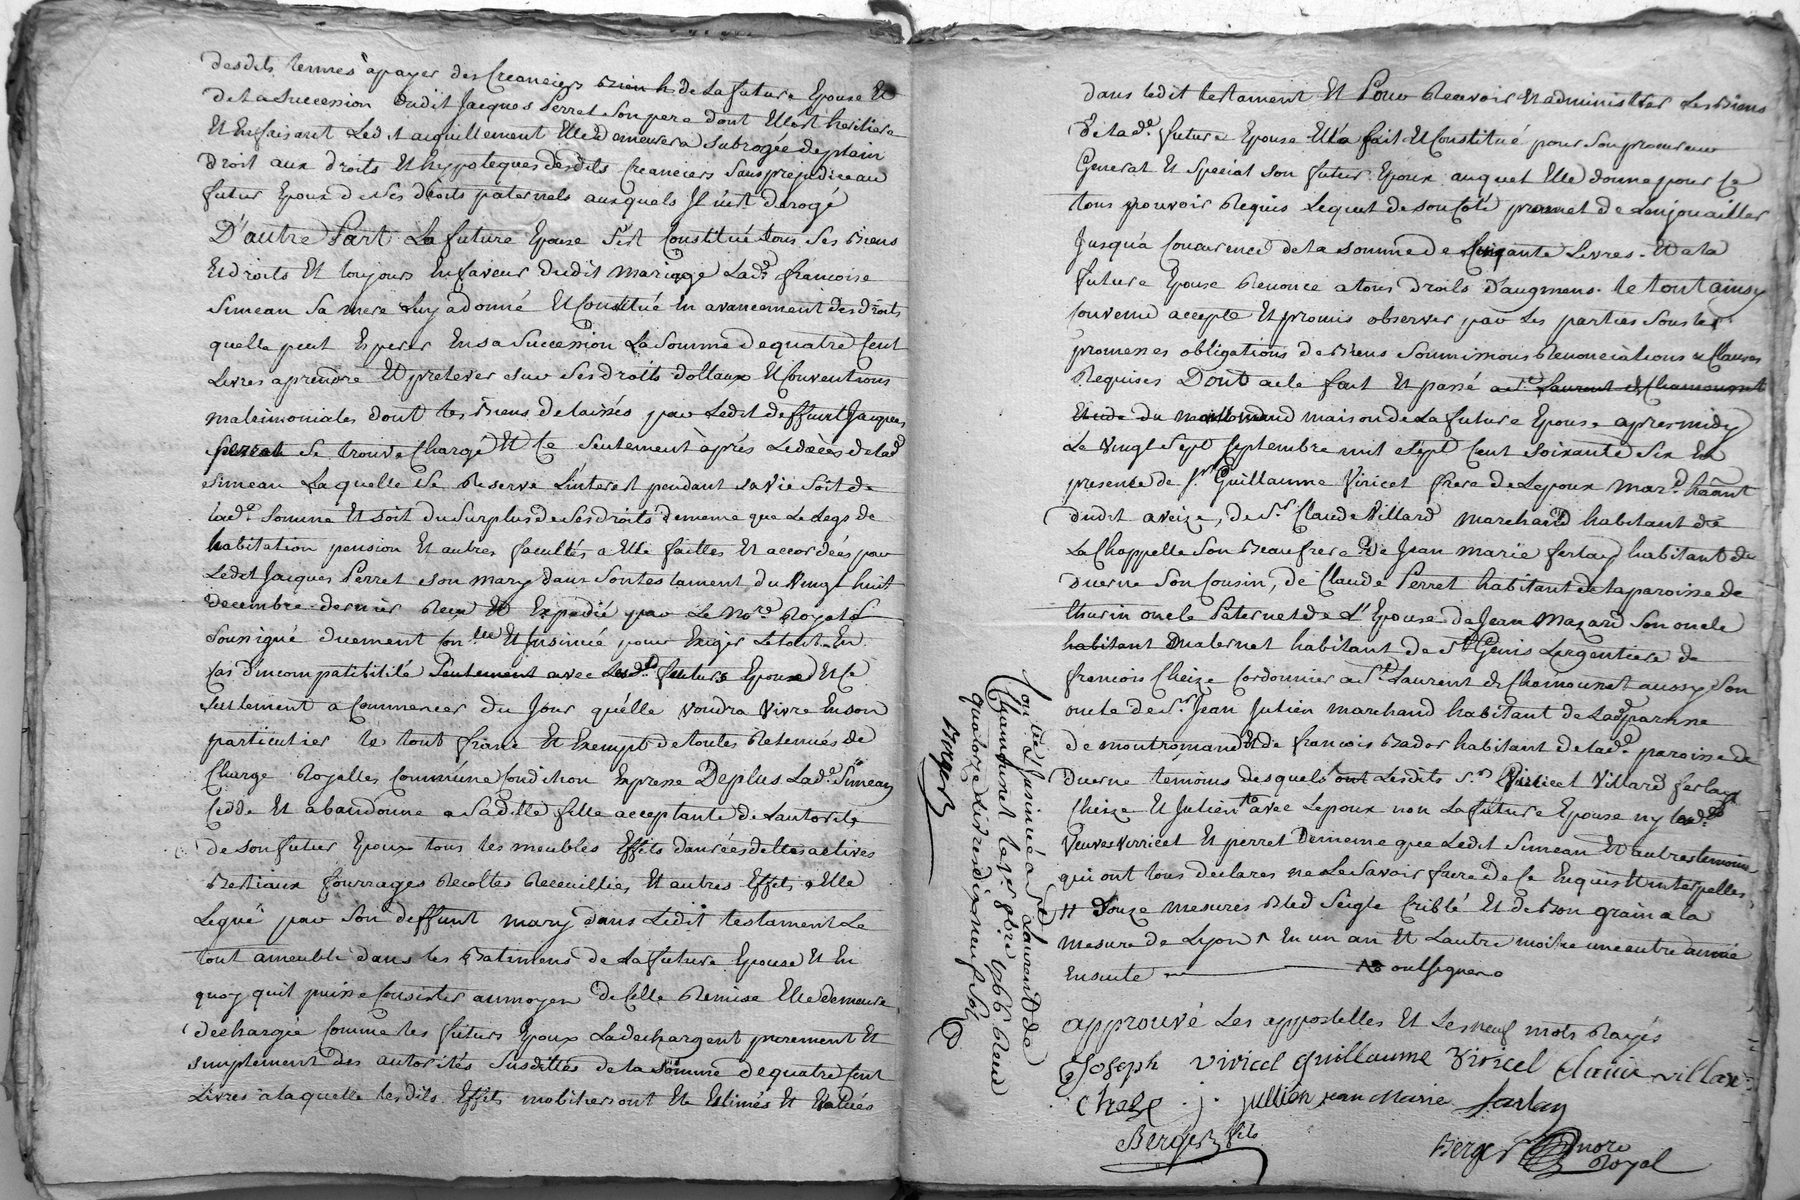 desdits termes à payer des Creanciers de La future Epouse Et
de La Succession dudit Jacques Perret Son pere dont Elle Est heritiere
Et En faisant Ledit acquillement Elle demeurera Subrogée de plain
droit aux droits Et hypoteques desdits Creanciers Sans prejudice au
futur Epoux de Ses droits paternels auxquels Il n'est derogé
D'autre Part La future Epouse S'est Constitué tous Ses Biens
Et droits Et toujours En faveur dudit mariage Lade. françoise
Simean Sa mere Luy a donné Et Constitué En avancement des droits
quelle peut Esperer En Sa Succession La Somme de quatre Cent
Livres a prendre Et prelever sur Ses droits dottaux Et Conventions
matrimoniales dont les Biens delaissés par Ledit deffunt Jacques
perret Se trouve Chargé Et Ce Seulement après Le décès de lad.
Simean Laquelle Se Reserve L'interest pendant Sa Vie Soit de
lade. Somme Et Soit du Surplus de Ses droits de meme que Le Legs de
habitation pension Et autres facultés a Elle faittes Et accordées par
Ledit Jacques Perret son mary dans Son testament du Vingt huit
decembre dernier Reçu Et Expedié par Le Nore. Royal
Soussigné duement Con.lé Et Insinué pour Exiger Le tout En
Cas d'incompatibilité Seulement avec future Epoux Et Ce
Seulement a Commencer du Jour qu'elle Voudra Vivre En Son
particulier le tout franc Et Exempt de toutes Retenues de
Charge Royalles Commune Condition Expresse De plus Lade. Simean
Cedde Et abandonne a Sadite fille acceptante de L'autorité
de Son futur Epoux tous les meubles Effets danrées dettes actives
Bestiaux fourrages Recoltes Receuillies Et autres Effets a Elle
Legué par Son deffunt mary dans Ledit testament Le
tout ameublé dans les Batimens de La future Epouse Et En
quoy qu'il puisse Consister au moyen de Celle Remise Elle demeure
dechargée Comme les futurs Epoux La dechargent purement Et
Simplement des autorités Susdittes de la Somme de quatre Cent
Livres a laquelle lesdits Effets mobiliers ont Eté Estimés Et Evalués
dans ledit testament Et Pour Recevoir Et administrer Les Biens
de lade. future Epouse Elle a fait Et Constitué pour Son procureur
General Et Special Son futur Epoux auquel Elle donne pour Ce
tous pouvoir Requis Lequel de Son Coté promet de L'enjouailler
Jusqu'a Concurence de la Somme de Cinquante Livres. Et a la
future Epouse Renonce a tous droits d'augmens. le tout ainsy
Convenu accepté Et promis observer par Les parties Sous les
promesses obligations de Biens Soummissions Renonciations & Clauses
Requises Dont acte fait Et passé a St. Laurent de Chamousset
Etude du maison de La future Epouse apres midy
Le Vingt Sept Septembre mil Sept Cent Soixante Six En
presence de Sr. Guillaume Viricel frere de L'epoux Mard. habant
dudit aveize, de Sr. Claude Villard marchand habitant de
La Chappelle Son Beaufrere de Jean marie ferlay habitant de
Duerne Son Cousin, de Claude Perret habitant de la paroisse de
thurin oncle Paternel de L'Epouse de Jean Mazard Son oncle
habitant habitant de St Genis Largentiere de
francois Cheize Cordonnier a St. Laurent de Chamousset aussy Son
oncle de Sr. Jean Julien marchand habitant de Lad. paroisse
de montromand Et de francois Bador habitant de lade. paroisse de
Duerne temoins desquels Lesdits Srs. Viricel Villard ferlay
Cheize Et Julien avec L'epoux non La future Epouse ny
Veuves Virricel Et perret De meme que Ledit Simean Et autres temoins
qui ont tous declarés ne Le Savoir faire de Ce Enquis Et interpelles.
# Douze mesures Bled Seigle Criblé Et de Bon grain a la
mesure de Lyon En un an Et L'autre moitie une autre année
Ensuite ont signe
approuvé Les appostilles Et Les neuf mots Rayés
Joseph viricel guillaume Viricel Claude villard
Cheze j. jullien jean Marie farlay
Berger fils
Berger nore
Royal
Con.lé Et Insinué a St Laurent de
Chamousset le 9bre 1766 Reçu
quatorze Livres dix neuf Sols
Berger